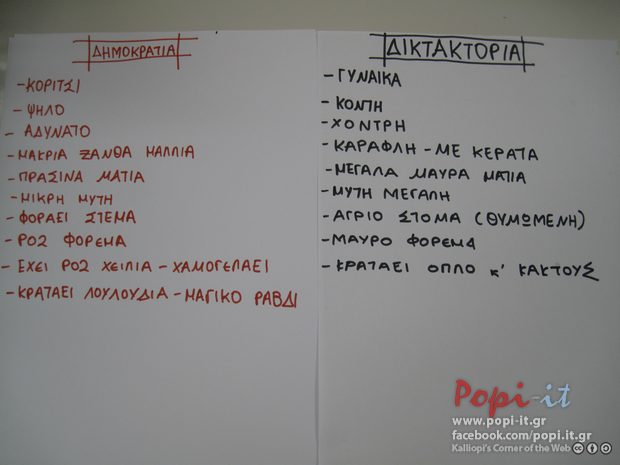 ΔΗΜΟΚΡΑΤΙΑ
-ΚΟΡΙΤΣΙ
-ΨΗΛΟ
-ΑΔΥΝΑΤΟ
-ΜΑΚΡΙΑ ΞΑΝΘΑ ΜΑΛΛΙΑ
-ΠΡΑΣΙΝΑ ΜΑΤΙΑ
-ΜΙΚΡΗ ΜΥΤΗ
-ΦΟΡΑΕΙ ΣΤΕΜΑ
-ΡΟΖ ΦΟΡΕΜΑ
-ΕΧΕΙ ΡΟΖ ΧΕΙΛΙΑ-ΧΑΜΟΓΕΛΑΕΙ
-ΚΡΑΤΑΕΙ ΛΟΥΛΟΥΔΙΑ-ΜΑΓΙΚΟ ΡΑΒΔΙ
ΔΙΚΤΑΚΤΟΡΙΑ
-ΓΥΝΑΙΚΑ
-ΚΟΝΤΗ
-ΧΟΝΤΡΗ
-ΚΑΡΑΦΛΗ-ΜΕ ΚΕΡΑΤΑ
-ΜΕΓΑΛΑ ΜΑΥΡΑ ΜΑΤΙΑ
-ΜΥΤΗ ΜΕΓΑΛΗ
-ΑΓΡΙΟ ΣΤΟΜΑ (ΘΥΜΩΜΕΝΗ)
-ΜΑΥΡΟ ΦΟΡΕΜΑ
-ΚΡΑΤΑΕΙ ΟΠΛΟ κ' ΚΑΚΤΟΥΣ
Popi-it
www.popi-it.gr
facebook.com/popi.it.gr
Kalliopi's Corner of the Web